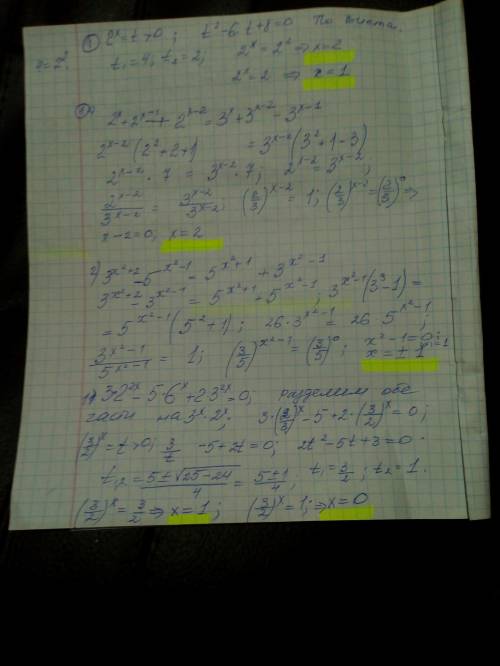 ① 2ˣ = t > 0; t² - 6t + 8 = 0 По Виета.
t₁ = 4; t₂ = 2; 2ˣ = 2² ⇒ x = 2
2ˣ = 2 ⇒ x = 1
2ˣ + 2ˣ⁻¹ + 2ˣ⁻² = 3ˣ + 3ˣ⁻² - 3ˣ⁻¹
2ˣ⁻²(2² + 2 + 1) = 3ˣ⁻²(3² + 1 - 3)
2ˣ⁻² · 7 = 3ˣ⁻² · 7; 2ˣ⁻² = 3ˣ⁻²;
2ˣ⁻²/3ˣ⁻² = 3ˣ⁻²/3ˣ⁻²; (2/3)ˣ⁻² = 1; (2/3)ˣ⁻² = (2/3)⁰ ⇒
x - 2 = 0; x = 2
2) 3^(x²+2) - 5^(x²-1) = 5^(x²+1) + 3^(x²-1)
3^(x²+2) - 3^(x²-1) = 5^(x²+1) + 5^(x²-1); 3^(x²-1)(3³ - 1) =
= 5^(x²-1)(5² + 1); 26 · 3^(x²-1) = 26 · 5^(x²-1);
3^(x²-1)/5^(x²-1) = 1; (3/5)^(x²-1) = (3/5)⁰; x² - 1 = 0;
x = ± 1
3·2²ˣ - 5·6ˣ + 2·3²ˣ = 0; разделим обе
части на 3ˣ·2ˣ; 3·(2/3)ˣ - 5 + 2·(3/2)ˣ = 0;
(3/2)ˣ = t > 0; 3/t - 5 + 2t = 0; 2t² - 5t + 3 = 0.
t₁,₂ = (5 ± √(25-24))/4 = (5±1)/4; t₁ = 3/2; t₂ = 1.
(3/2)ˣ = 3/2 ⇒ x = 1; (3/2)ˣ = 1; ⇒ x = 0